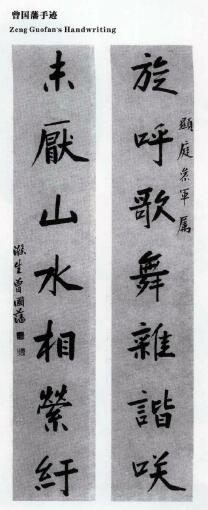 曾国藩手迹
Zeng Guofan's Handwriting
顯庭參軍屬
旋呼歌舞雜諧咲
未厭山水相縈紆
滌生曾國藩